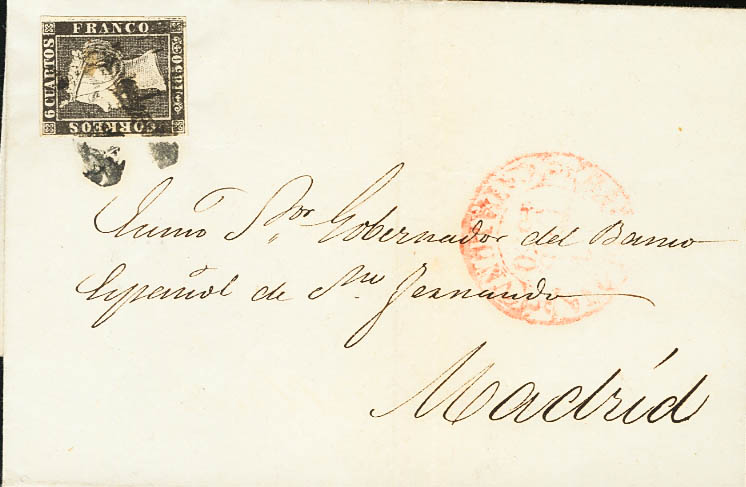 FRANCO
6 CUARTOS
1850
CORREOS
Exmo Sor Gobernador del Banco
Español de Sn Fernando
Madrid